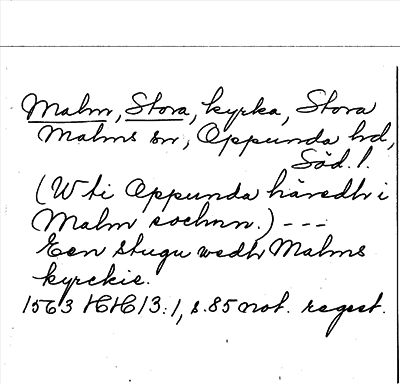 Malm, Stora, kyrka, Stora
Malms sn, Oppunda hd,
Söd. l.
(W ti Oppunda häredh i
Malm sochnn.) - - -
Een stugu wedh Malms
kyrckie.
1563 HH 13:1, s. 85 not. regest.